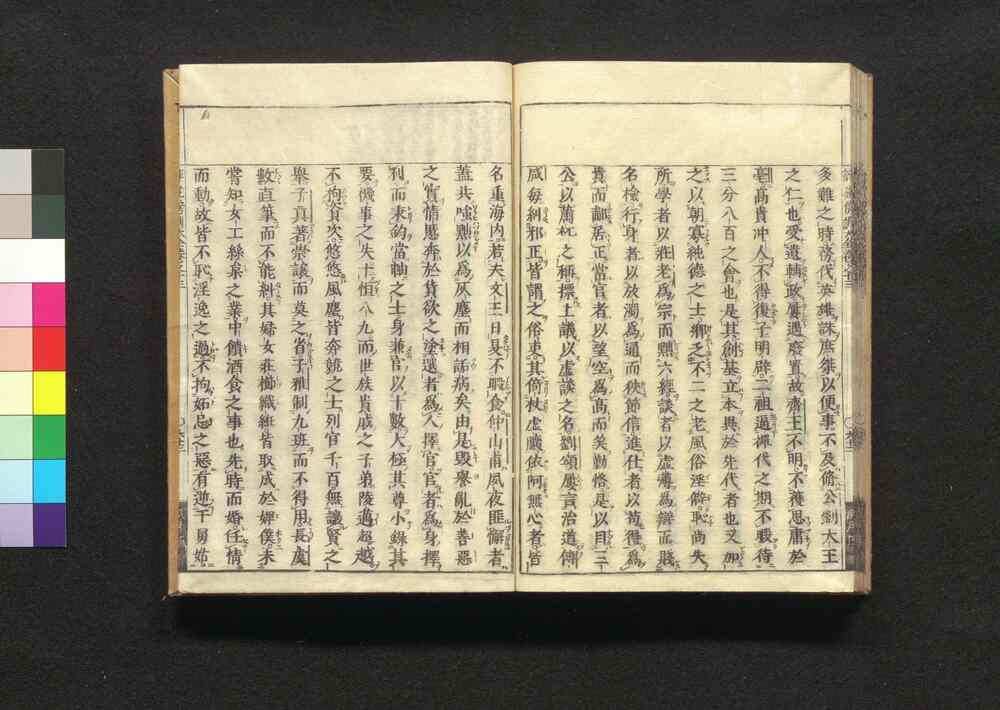 多難之時務伐英雄誅庶桀以便事不及脩公劉大王
之仁也受遺輔政屢遇廢置故齊王不明不獲思庸於
亳高貴冲人不得復子明辟二祖逼禪代之期不暇待
三分八百之會也是其創基立本異於先代者也又加
之以朝寡純德之士鄉乏不二之老風俗淫僻恥尚失
所學者以莊老爲宗而黜六經談者以虛薄爲辯而賤
名檢行身者以放濁爲通而狹節信進仕者以苟得爲
貴而鄙居正當官者以望空爲高而笑勤恪是以目三
公以蕭杌之稱摽上議以虛談之名劉頌屢言治道傅
咸每糾邪正皆謂之俗吏其倚杖虛曠依阿無心者皆
名重海內若夫文王日昃不暇食仲山甫夙夜匪懈者
蓋共嗤黜以爲灰塵而相詬病矣由是毀譽亂於善惡
之實情慝奔於貨欲之塗選者爲人擇官官者爲身擇
利而秉鈞當軸之士身兼官以十數大極其尊小錄其
要機事之失十恒八九而世族貴戚之子弟陵邁超越
不拘資次悠悠風塵皆奔競之士列官千百無讓賢之
舉子真著崇讓而莫之省子雅制九班而不得用長虞
數直筆而不能糾其婦女莊櫛織紝皆取成於婢僕未
嘗知女工絲枲之業中饋酒食之事也先時而婚任情
而動故皆不恥淫逸之過不拘妬忌之惡有逆于舅姑